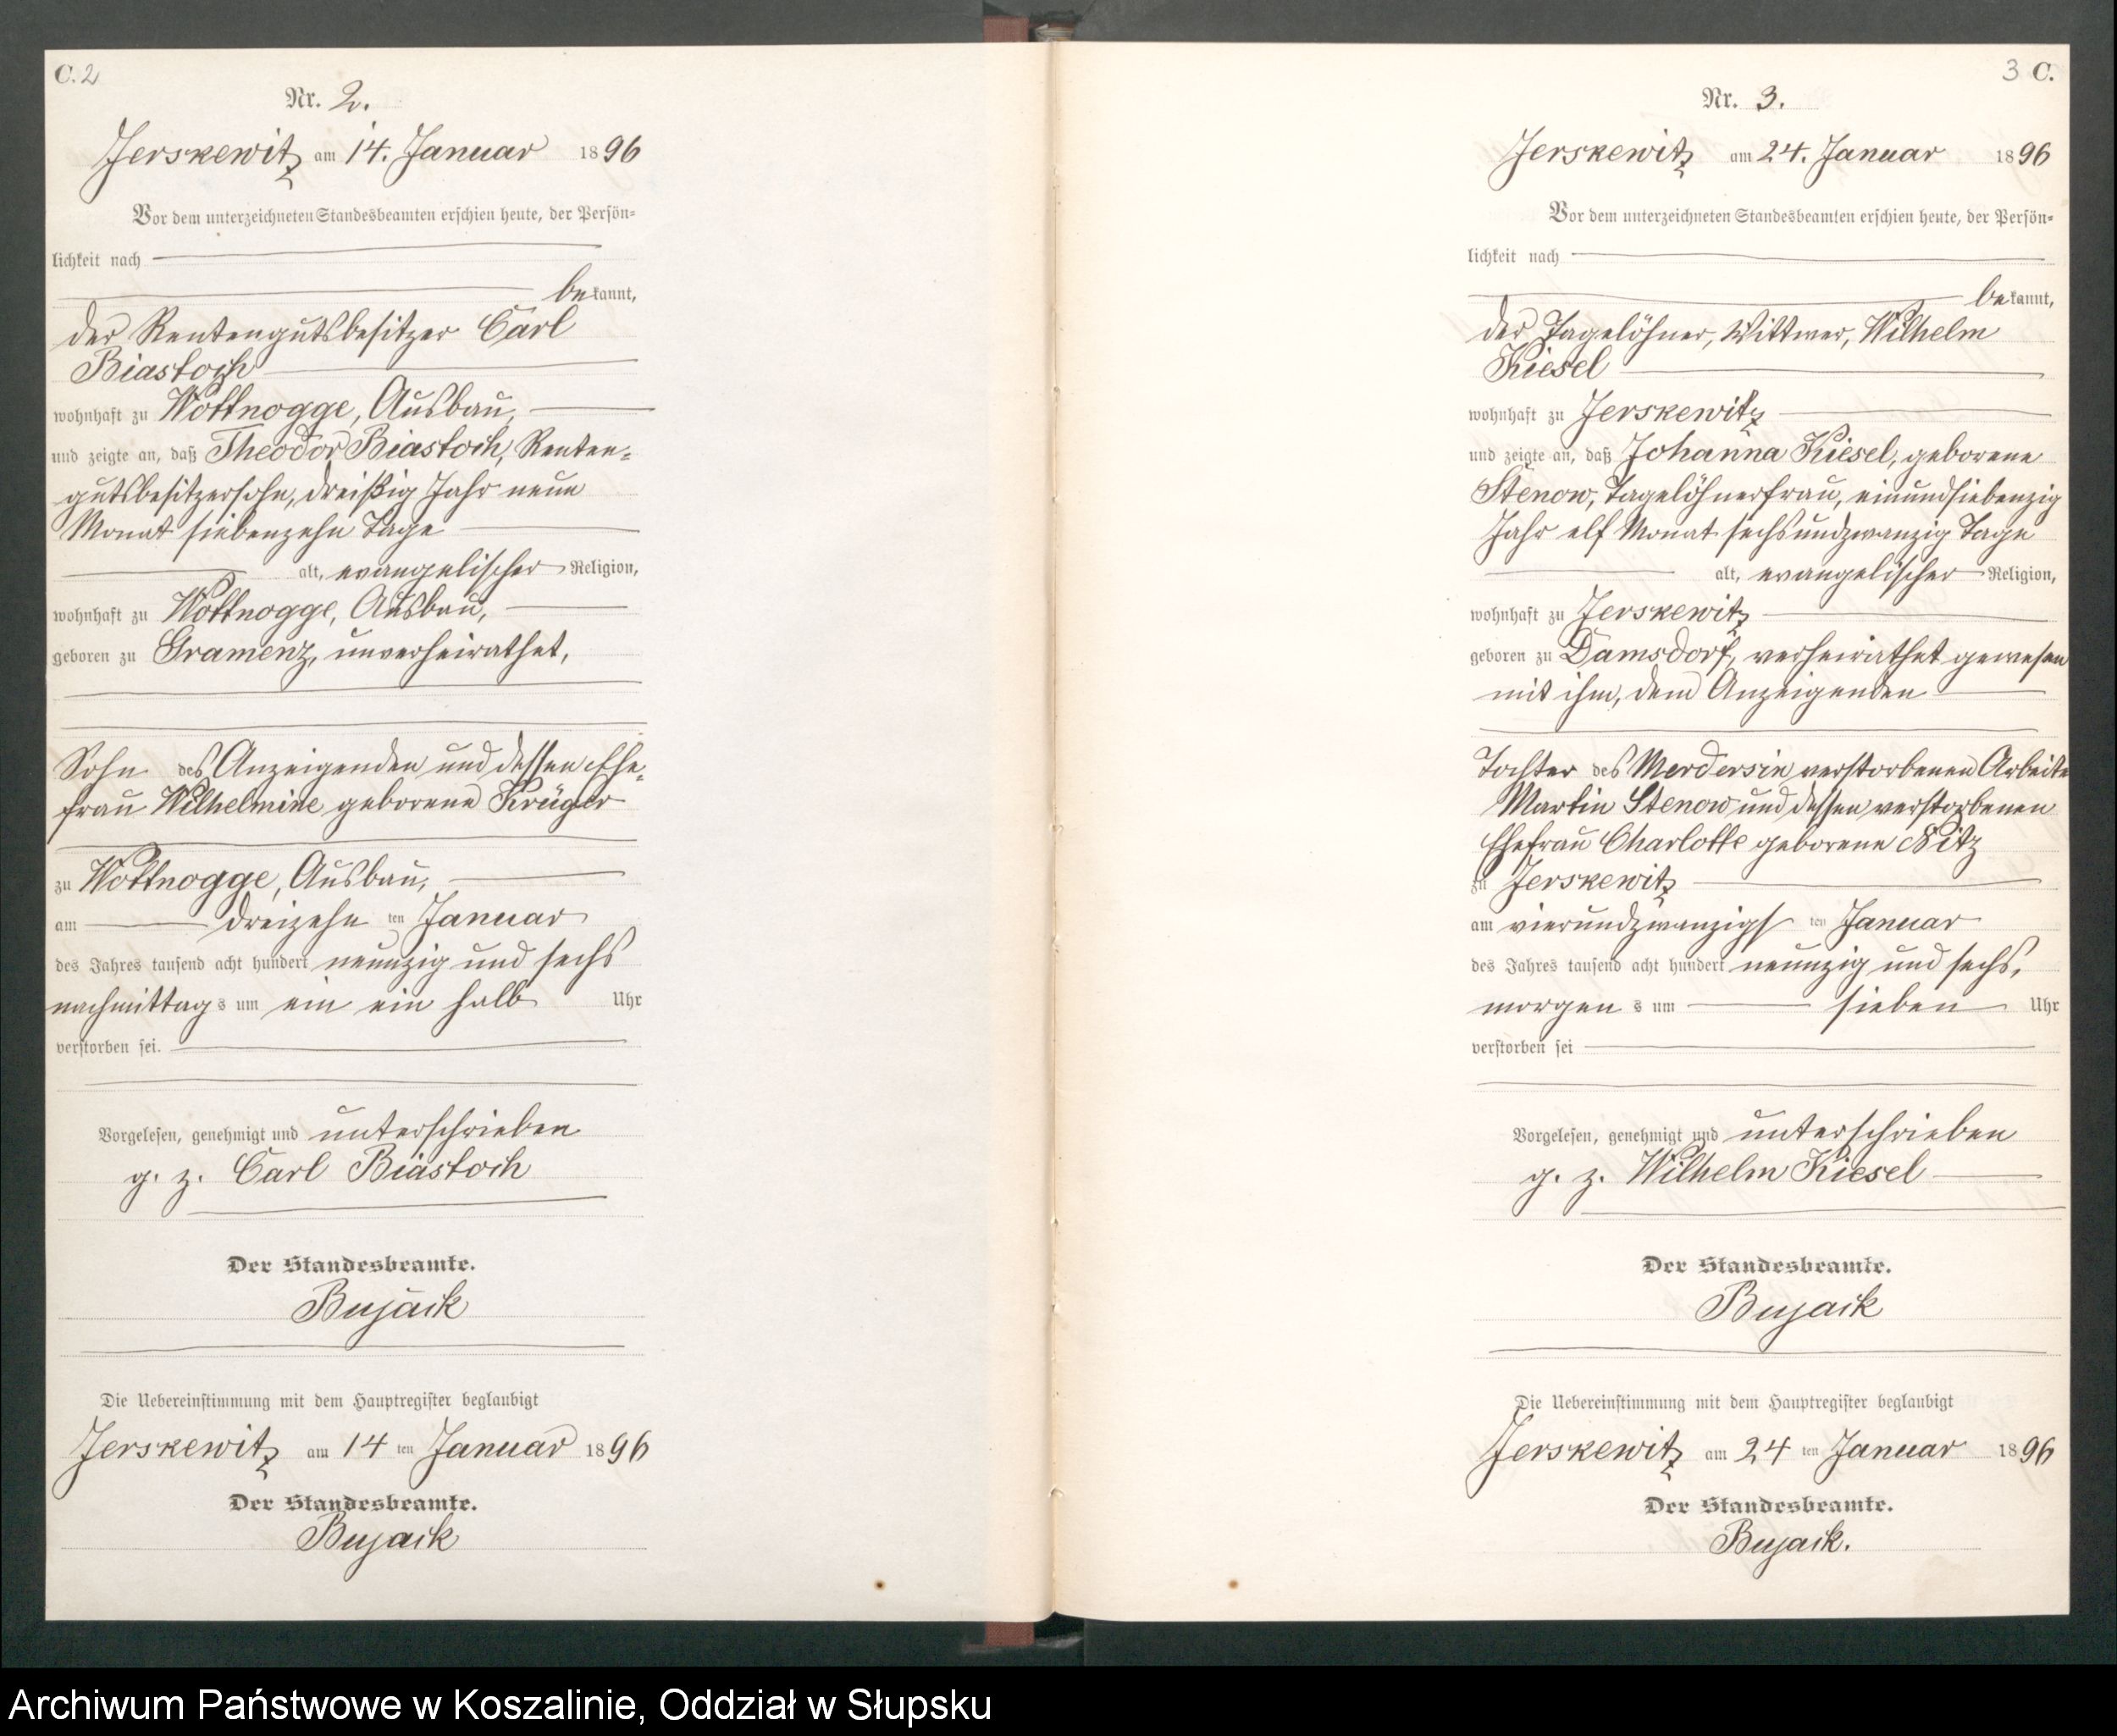 C. 2
Nr. 2.
Jerskewitz am 14. Januar 1896
Vor dem unterzeichneten Standesbeamten erschien heute, der Persön-
lichkeit nach
bekannt,
der Rentengutsbesitzer Carl
Biastoch
wohnhaft zu Wottnogge, Ausbau,
und zeigte an, daß Theodor Biastoch, Renten-
gutsbesitzersohn, dreißig Jahr neun
Monat siebenzehn Tage
alt, evangelischer Religion,
wohnhaft zu Wottnogge, Ausbau,
geboren zu Gramenz, unverheirathet,
Sohn des Anzeigenden und dessen Ehe-
frau Wilhelmine geborene Krüger
zu Wottnogge, Ausbau,
am dreizehn ten Januar
des Jahres tausend acht hundert neunzig und sechs
nachmittags um ein ein halb Uhr
verstorben sei.
Vorgelesen, genehmigt und unterschrieben
g. z. Carl Biastoch
Der Standesbeamte.
Bujack
Die Uebereinstimmung mit dem Hauptregister beglaubigt
Jerskewitz am 14 ten Januar 1896
Der Standesbeamte.
Bujack
3 C.
Nr. 3.
Jerskewitz am 24. Januar 1896
Vor dem unterzeichneten Standesbeamten erschien heute, der Persön-
lichkeit nach
bekannt,
der Tagelöhner, Wittwer, Wilhelm
Kiesel
wohnhaft zu Jerskewitz
und zeigte an, daß Johanna Kiesel, geborene
Stenow, Tagelöhnerfrau, einundsiebenzig
Jahr elf Monat sechsundzwanzig Tage
alt, evangelischer Religion,
wohnhaft zu Jerskewitz
geboren zu Damsdorf, verheirathet gewesen
mit ihm, dem Anzeigenden
Tochter des Merdersin verstorbenen Arbeite
Martin Stenow und dessen verstorbenen
Ehefrau Charlotte geborene Nitz
zu Jerskewitz
am vierundzwanzigs ten Januar
des Jahres tausend acht hundert neunzig und sechs,
morgens um sieben Uhr
verstorben sei
Vorgelesen, genehmigt und unterschrieben
g. z. Wilhelm Kiesel
Der Standesbeamte.
Bujack
Die Uebereinstimmung mit dem Hauptregister beglaubigt
Jerskewitz am 24 ten Januar 1896
Der Standesbeamte.
Bujack.
Archiwum Państwowe w Koszalinie, Oddział w Słupsku